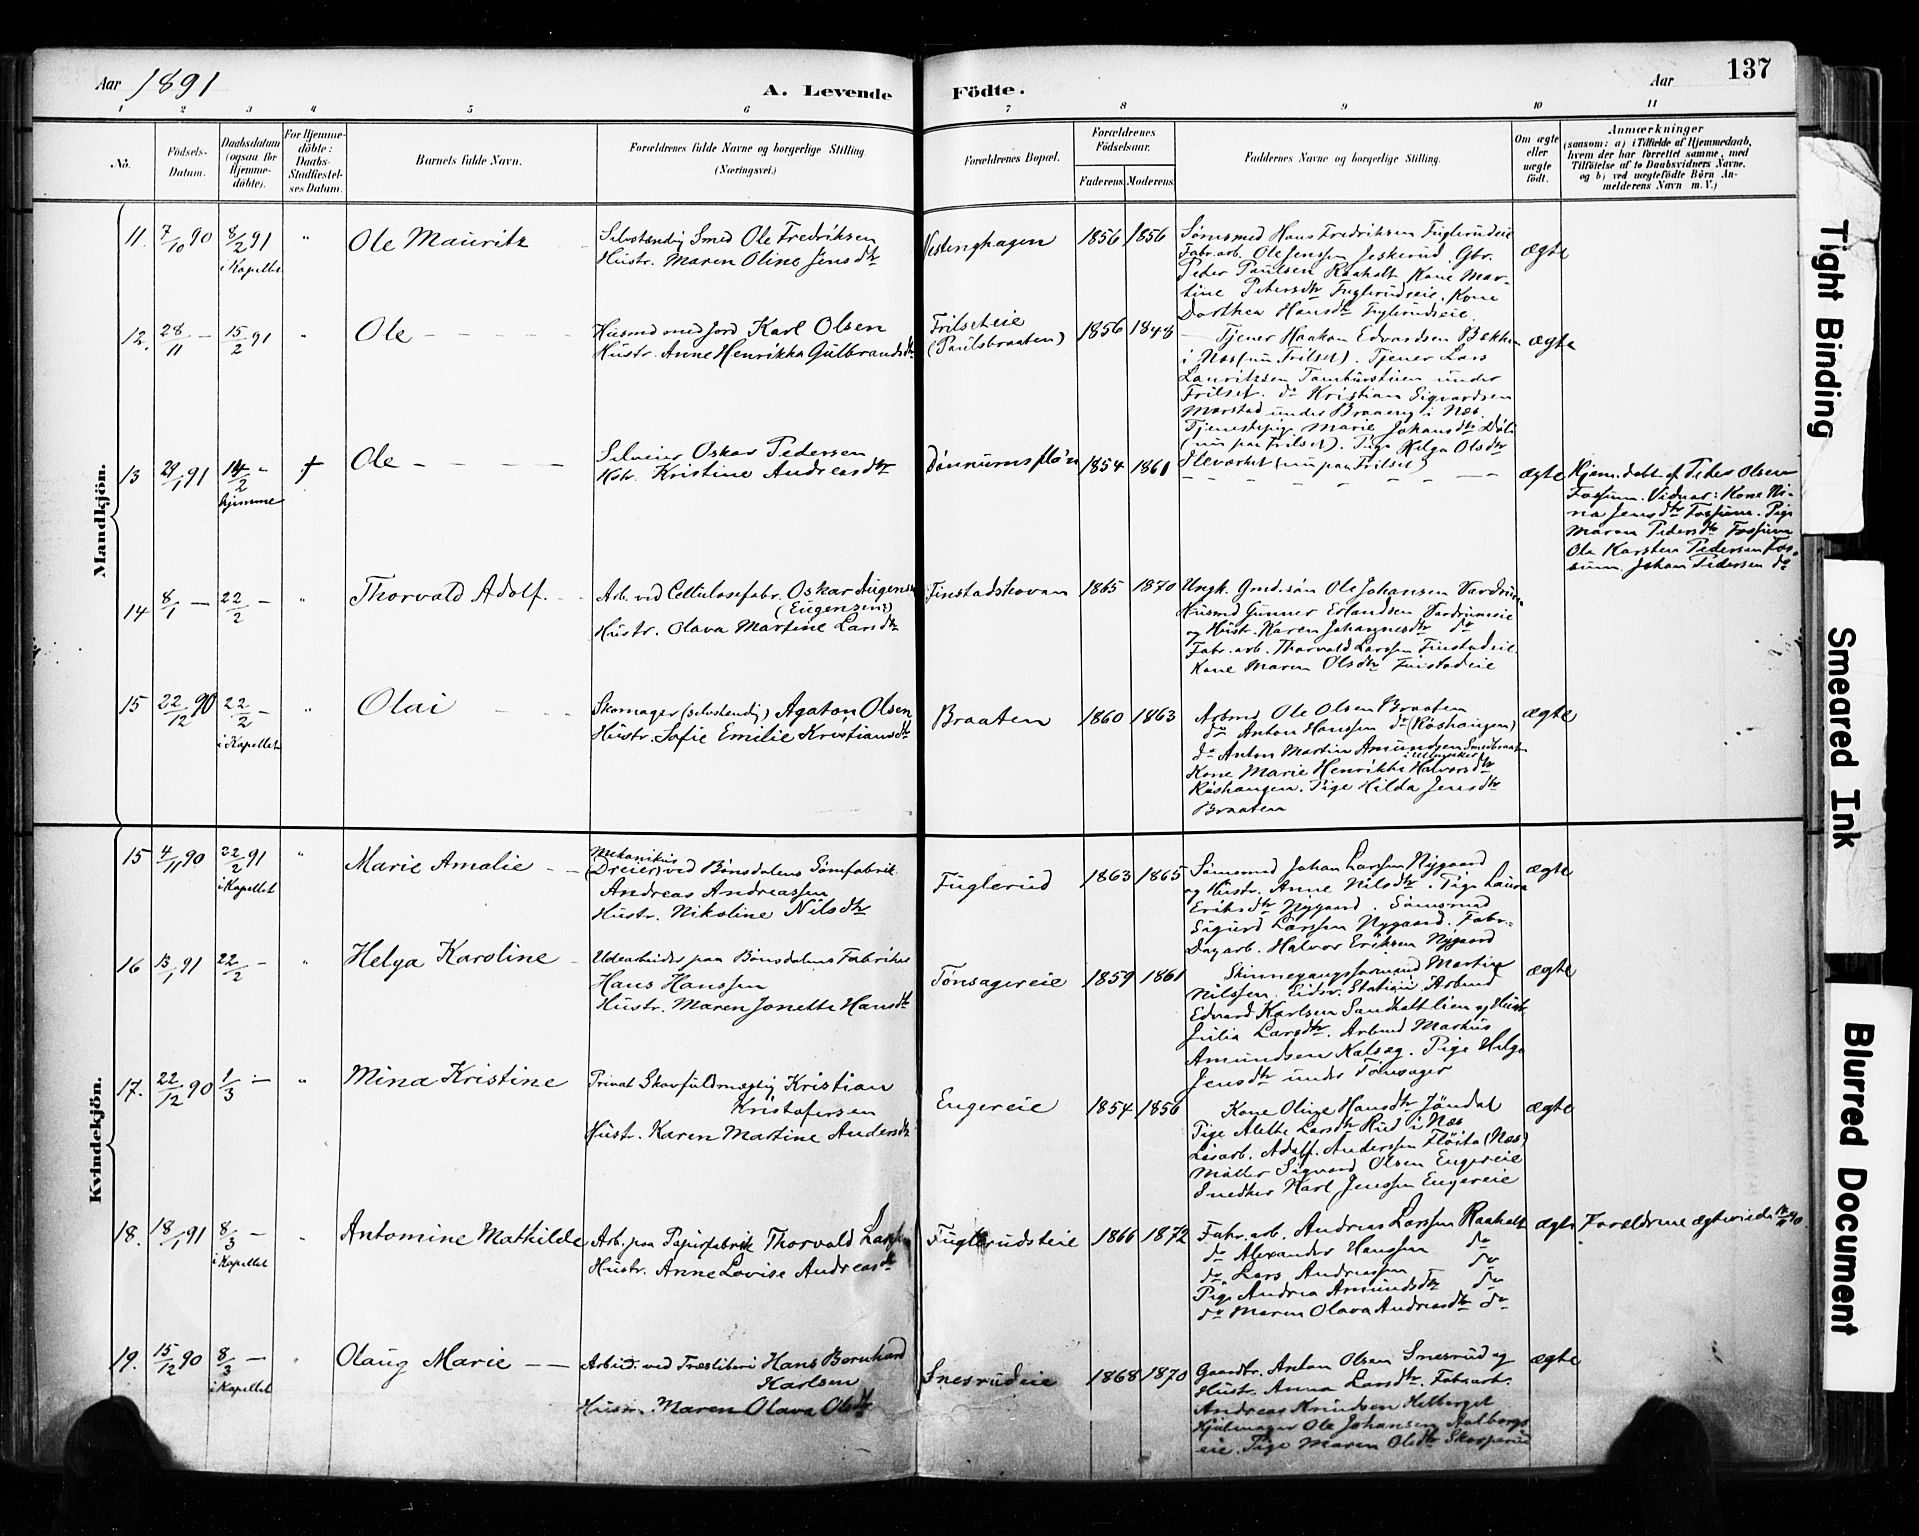 Aar 1891
A. Levende Födte.
Aar
137
1 2 3 4 5 6 7 8 9 10 11
No.
Födsels-Datum.
Daabsdatum (ogsaa för Hjemme-döbte).
For Hjemme-döbte: Daabs-Stadfæstelses Datum.
Barnets fulde Navn.
Forældrenes fulde Navne og borgerlige Stilling (Næringsvei.)
Forældrenes Bopæl.
Forældrenes Födselsaar.
Faderens. Moderens.
Faddernes Navne og borgerlige Stilling.
Om ægte eller uægte födt.
Anmærkninger
(saasom: a) i Tilfælde af Hjemmedaab,
hvem der har forrettet samme, med
Tilföielse af to Daabsvidners Navne.
og b) ved uægtefödte Börn An-
melderens Navn m. V.)
Mandkjön.
11. 7/10 90 8/2 91 i Kapellet " Ole Mauritz
Selvstændig Smed Ole Fredriksen
Hustr. Maren Oline Jensdtr
Vestenghagen 1856 1856
Sømsmed Hans Fredriksen Fuglerudeie
Fabr.arb. Ole Jenssen Jeskerud. Gbr.
Peder Paulsen Raaholt Kone Mar-
tine Petersdtr Fuglerudseie. Kone
Dorthea Hansdtr Fuglerudseie.
ægte
12. 28/11 — 15/2 91 " Ole
Husmd med Jord Karl Olsen
Hustr. Anne Henrikka Gulbrandsdtr
Frilseteie
(Paulsbraaten) 1856 1848
Tjener Haakon Edvardsen Bakken
i Næs (nu Frilset). Tjener Lars
Lauritzsen Tamburstuen under
Frilset. do Kristian Sigvardsen
Morstad under Braaeng i Næs
Tjenestepige Marie Johansdtr Døli
(nu paa Frilset). Pige Helga Olsdtr
Ileværket (nu paa Frilset)
ægte
13 29/1 91 14/2 " hjemme † Ole
Selveier Oskar Pedersen
Hstr. Kristine Andreasdtr
Dønnumsfløn 1854 1861
ægte
Hjem.døbt af Peder Olsen
Fossum. Vidner: Kone Ni-
na Jensdtr Fossum. Pige
Maren Pedersdtr Fossum
Ole Karsten Pedersen Fos-
sum. Johan Pedersen do
14 8/1 — 22/2 — " Thorvald Adolf.
Arb. ved Cellulosefabr. Oskar Augensen
(Eugensen)
Hustr. Olava Martine Larsdtr
Finstadshovan 1865 1870
Ungk. Gmd.søn Ole Johansen
Husmd Gunner Erlandsen
og Hustr. Karen Johannesdtr do
Fabr.arb. Thorvald Larssen Finstadeie.
Kone Maren Olsdtr Finstadeie
15 22/12 90 22/2 — i Kapellet " Olai
Skomager (selvstendig) Agaton Olsen
Hustr. Sofie Emilie Kristiansdtr
Braaten 1860 1863
Arbmd Ole Olsen Braaten
do Anton Hanssen do (Røshaugen)
do Anton Martin Amundsen Smedbraaten
Kone Marie Henrikke Halvorsdtr
Røshaugen. Pige Hilda Jensdtr
Braaten
ægte
Kvindekjön.
15 4/11 90 22/2 91 i Kapellet " Marie Amalie
Mekanikus
(Dreier) ved Bönsdalens Sömfabrik
Andreas Andreassen
Hustr. Nikoline Nilsdtr
Fuglerud 1863 1865
Sømsmed Johan Larssen Nygaard
og Hustr. Anne Nilsdtr. Pige Laura
Eriksdtr Nygaard. Sømsmed
Sigurd Larssen Nygaard. Fabr-
Dagarb. Halvor Eriksen Nygaard
ægte
16 13/1 91 22/2 — " Helga Karoline
Udearbeider paa Bönsdalens Fabrikker
Hans Hanssen
Hustr. Maren Jonette Hansdtr
Tønsagereie 1859 1861
Skinnegangsformand Martin
Nilssen. Eidsv. Station. Arbmd
Edvard Karlsen Sandholtlien og Hustr.
Julia Larsdtr. Arbmd Markus
Amundsen Kalsæg. Pige Helga
Jensdtr under Tönsager
ægte
17. 22/12 90 1/3 — " Mina Kristine
Privat Skovfuldmægtig Kristian
Kristofersen
Hustr. Karen Martine Andersdtr
Engereie 1854 1856
Kone Oline Hansdtr Jöndal
Pige Alette Larsdtr Rud i Næs
Løsarb. Adolf Anderssen Fløita (Næs)
Möller Sigvard Olsen Engereie
Snedker Karl Jenssen Engereie
ægte
18. 18/1 91 8/3 — i Kapellet " Antomine Mathilde
Arb. paa Papirfabrik Thorvald Larssen
Hustr. Anne Lovise Andreasdtr
Fuglerudsteie 1866 1872
Fabr.arb. Andreas Larssen Raaholt
do Alexander Hanssen do
do Lars Andreassen do
Pige Andrea Amundsdtr do
do Maren Olava Andreasdtr do
ægte
Forældrene ægteviede 90.
19. 15/12 90 8/3 — i Kapellet " Olaug Marie
Arbeid. ved Træsliberi Hans Bernhard
Karlsen
Hustr. Maren Olava Olsdtr
Snesrudeie 1868 1870
Gaardbr. Anton Olsen Snesrud og
Hustr. Anna Larsdtr. Fabr.arb.
Andreas Knudsen Helberget
Hjulmager Ole Johansen Aalborgs
eie. Pige Maren Olsdtr Skorperud
ægte
Tight Binding
Smeared Ink
Blurred Document